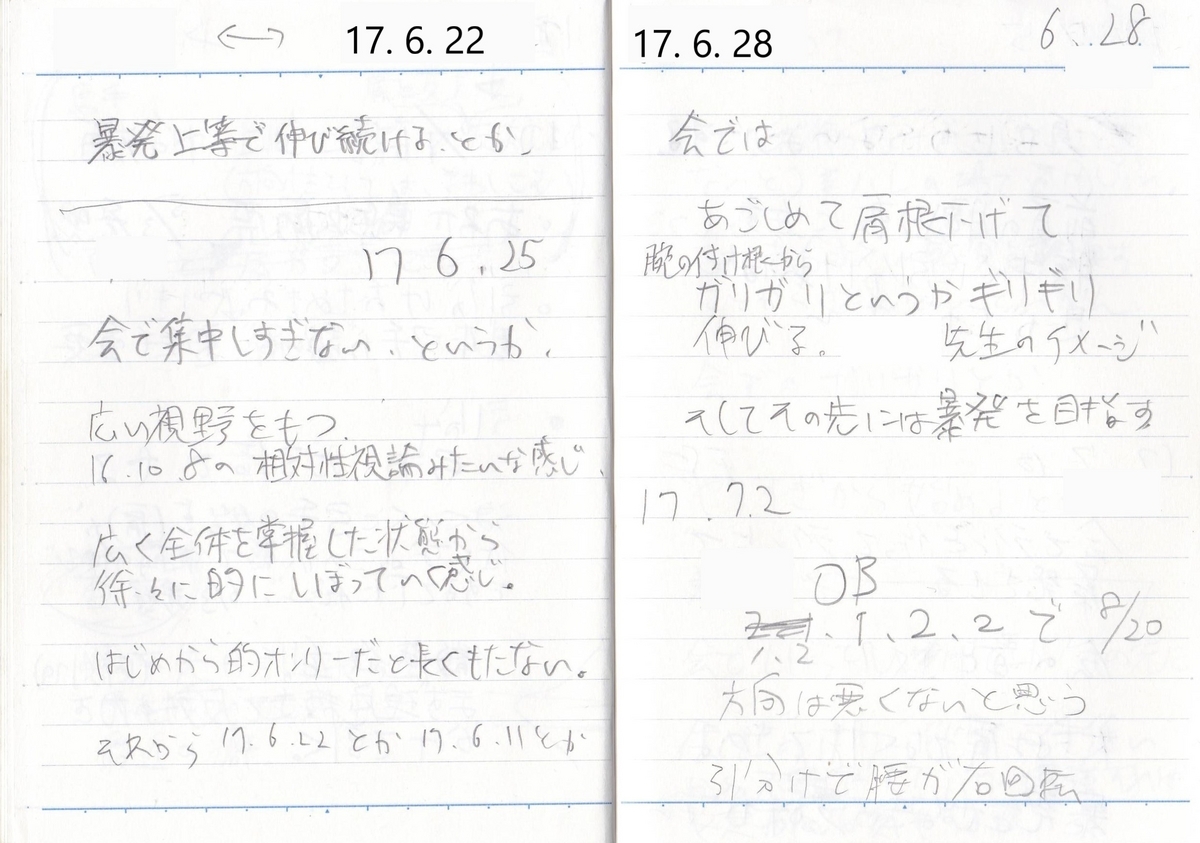 ↔ 17. 6. 22
暴発上等で伸び続ける、とか、
17 6.25
会で集中しすぎない、というか、
広い視野をもつ、
16.10.8の相対性視論みたいな感じ、
広く全体を掌握した状態から
徐々に的にしぼっていく感じ。
はじめから的オンリーだと長くもたない。
それから 17.6.22 とか 17.6.11 とか
17. 6. 28
6.28.
会では
あごしめて肩根下げて
腕の付け根から
ガリガリというかギリギリ
伸びる。 先生のイメージ
そしてその先には暴発を目指す
17.7.2
OB
1、2、1、2、2で 8/20
方向は悪くないと思う
引分けで腰が右回転